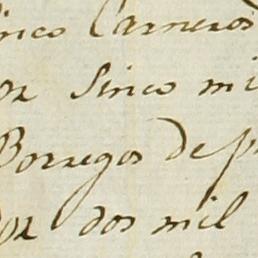 inco Carneros
or Sinco mi
Borregos de p
or dos mil